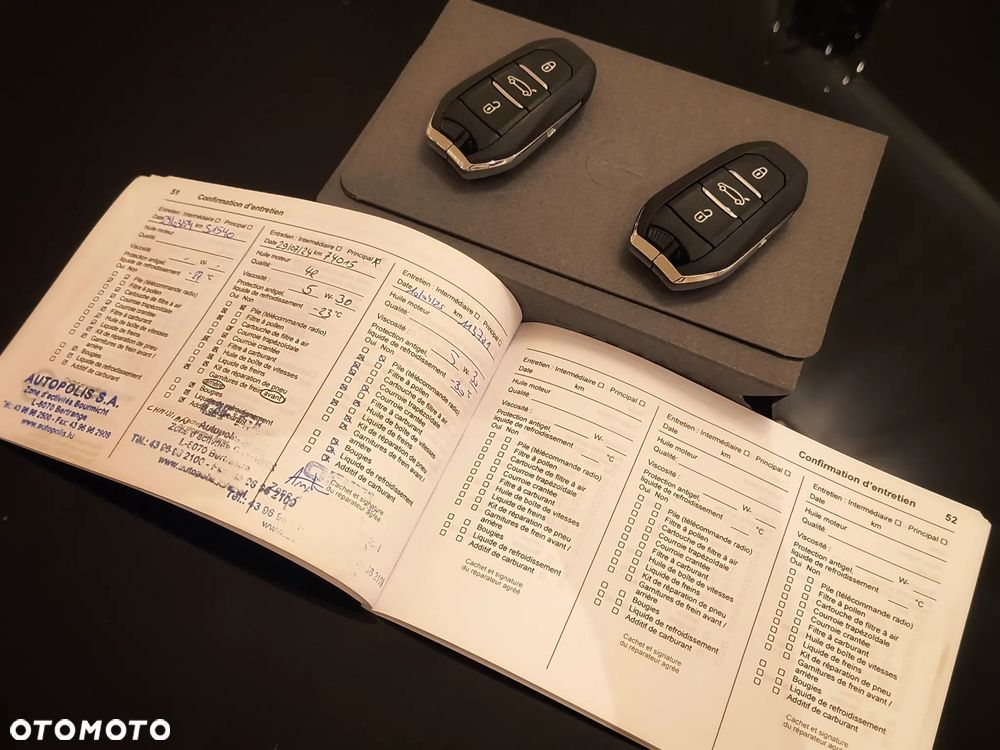 51 Confirmation d'entretien
Entretien : Intermédiaire Principal
Date km 51540
Huile moteur
Qualité
Viscosité W-
Protection antigel
liquide de refroidissement °C
Oui Non
Pile (télécommande radio)
Filtre à pollen
Cartouche de filtre à air
Courroie trapézoïdale
Courroie crantée
Filtre à carburant
Huile de boîte de vitesses
Liquide de freins
Kit de réparation de pneu
Garnitures de frein avant /
arrière
Bougies
Liquide de refroidissement
Additif de carburant
AUTOPOLIS S.A.
Zone d'activités Bourmicht
L-8070 Bertrange
Tél.: 43 96 96 2500 - Fax: 43 96 96 2909
www.autopolis.lu
Entretien : Intermédiaire Principal X
Date 29/07/24 km 74015
Huile moteur
Qualité:
Viscosité: 5 W-30
Protection antigel
liquide de refroidissement -23 °C
Oui Non
Pile (télécommande radio)
Filtre à pollen
Cartouche de filtre à air
Courroie trapézoïdale
Courroie crantée
Filtre à carburant
Huile de boîte de vitesses
Liquide de freins
Kit de réparation de pneu
Garnitures de frein avant /
arrière
Bougies
Autopolis
Zone d'activités
L-8070
Tél.: 43 96 96 2100
Entretien : Intermédiaire Principal
Date km
Huile moteur
Qualité:
Viscosité: 5 W-30
Protection antigel
liquide de refroidissement
Oui Non
Pile (télécommande radio)
Filtre à pollen
Cartouche de filtre à air
Courroie trapézoïdale
Courroie crantée
Filtre à carburant
Huile de boîte de vitesses
Liquide de freins
Kit de réparation de pneu
Garnitures de frein avant /
arrière
Bougies
Liquide de refroidissement
Additif de carburant
Cachet et signature
du réparateur agréé
Entretien : Intermédiaire Principal
Date km
Huile moteur
Qualité:
Viscosité: W-
Protection antigel
liquide de refroidissement °C
Oui Non
Pile (télécommande radio)
Filtre à pollen
Cartouche de filtre à air
Courroie trapézoïdale
Courroie crantée
Filtre à carburant
Huile de boîte de vitesses
Liquide de freins
Kit de réparation de pneu
Garnitures de frein avant /
arrière
Bougies
Liquide de refroidissement
Additif de carburant
Cachet et signature
du réparateur agréé
Entretien : Intermédiaire Principal
Date km
Huile moteur
Qualité:
Viscosité: W-
Protection antigel
liquide de refroidissement °C
Oui Non
Pile (télécommande radio)
Filtre à pollen
Cartouche de filtre à air
Courroie trapézoïdale
Courroie crantée
Filtre à carburant
Huile de boîte de vitesses
Liquide de freins
Kit de réparation de pneu
Garnitures de frein avant /
arrière
Bougies
Liquide de refroidissement
Additif de carburant
Cachet et signature
du réparateur agréé
Confirmation d'entretien 52
Entretien : Intermédiaire Principal
Date km
Huile moteur
Qualité:
Viscosité : W-
Protection antigel
liquide de refroidissement °C
Oui Non
Pile (télécommande radio)
Filtre à pollen
Cartouche de filtre à air
Courroie trapézoïdale
Courroie crantée
Filtre à carburant
Huile de boîte de vitesses
Liquide de freins
Kit de réparation de pneu
Garnitures de frein avant /
arrière
Bougies
Liquide de refroidissement
Additif de carburant
Cachet et signature
du réparateur agréé
OTOMOTO